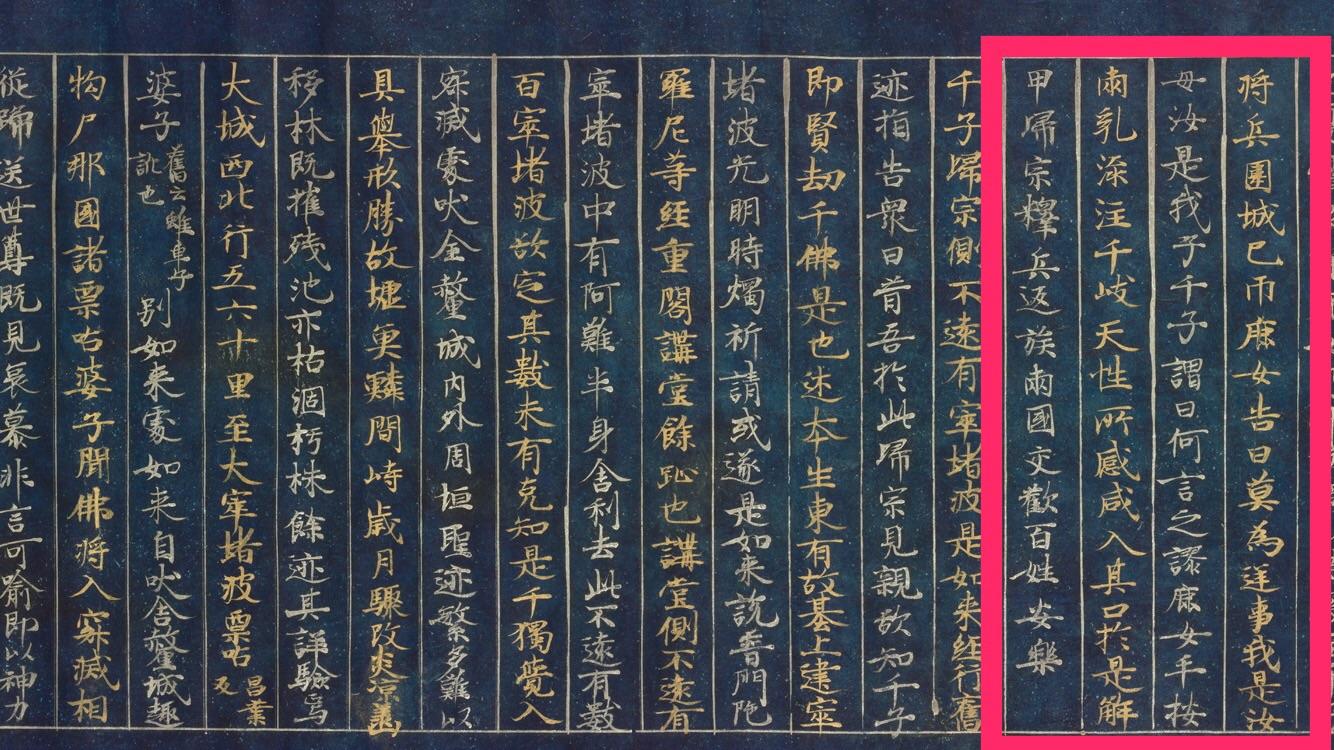 将兵圍城已帀鹿女告曰莫為逆事我是汝
母汝是我子千子謂曰何言之謬鹿女手按
兩乳流注千岐天性所感咸入其口於是解
甲歸宗釋兵返族兩國交歡百姓安樂
千子歸宗側不遠有窣堵波是如来經行舊
迹指告衆曰昔吾於此歸宗見親欲知千子
即賢劫千佛是也述本生東有故基上建窣
堵波光明時燭祈請或遂是如来說普門陀
羅尼等經重閣講堂餘趾也講堂側不遠有
窣堵波中有阿難半身舎利去此不遠有數
百窣堵波故定其數未有克知是千獨覺入
寂滅處吠舎釐城内外周垣聖迹繁多難以
具舉形勝故墟魚鱗間峙歳月驟改炎涼亟
移林既摧殘池亦枯涸朽株餘迹其詳驗焉
大城西北行五六十里至大窣堵波栗呫昌葉反
婆子舊云離車子訛也别如来處如来自吠舎釐城趣
拘尸那國諸栗呫婆子聞佛将入寂滅相
從號送世尊既見哀慕非言可喻即以神力